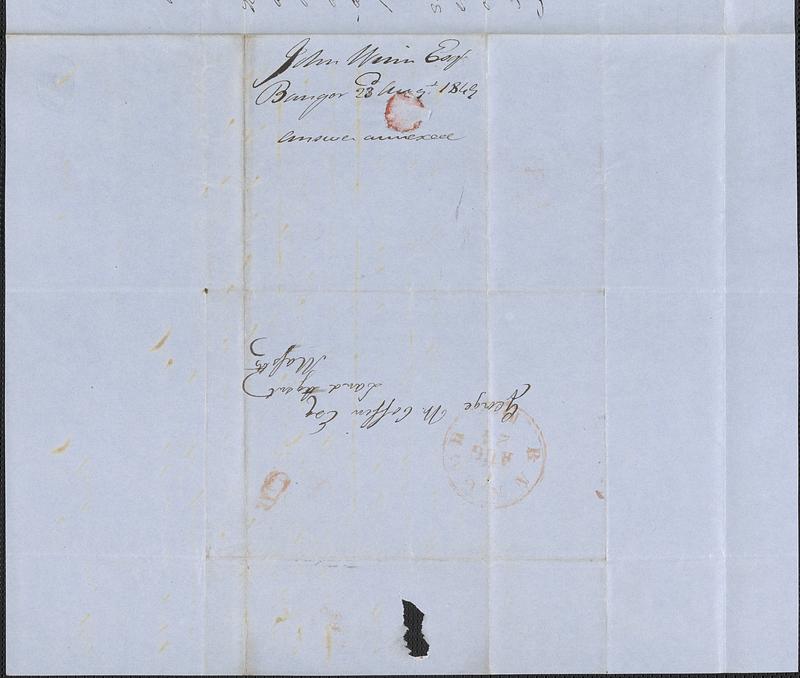 John Winn Esq.
Bangor 23d Augt. 1849
answer annexed
George W. Coffin Esq
Land Agent
BANGOR
AUG